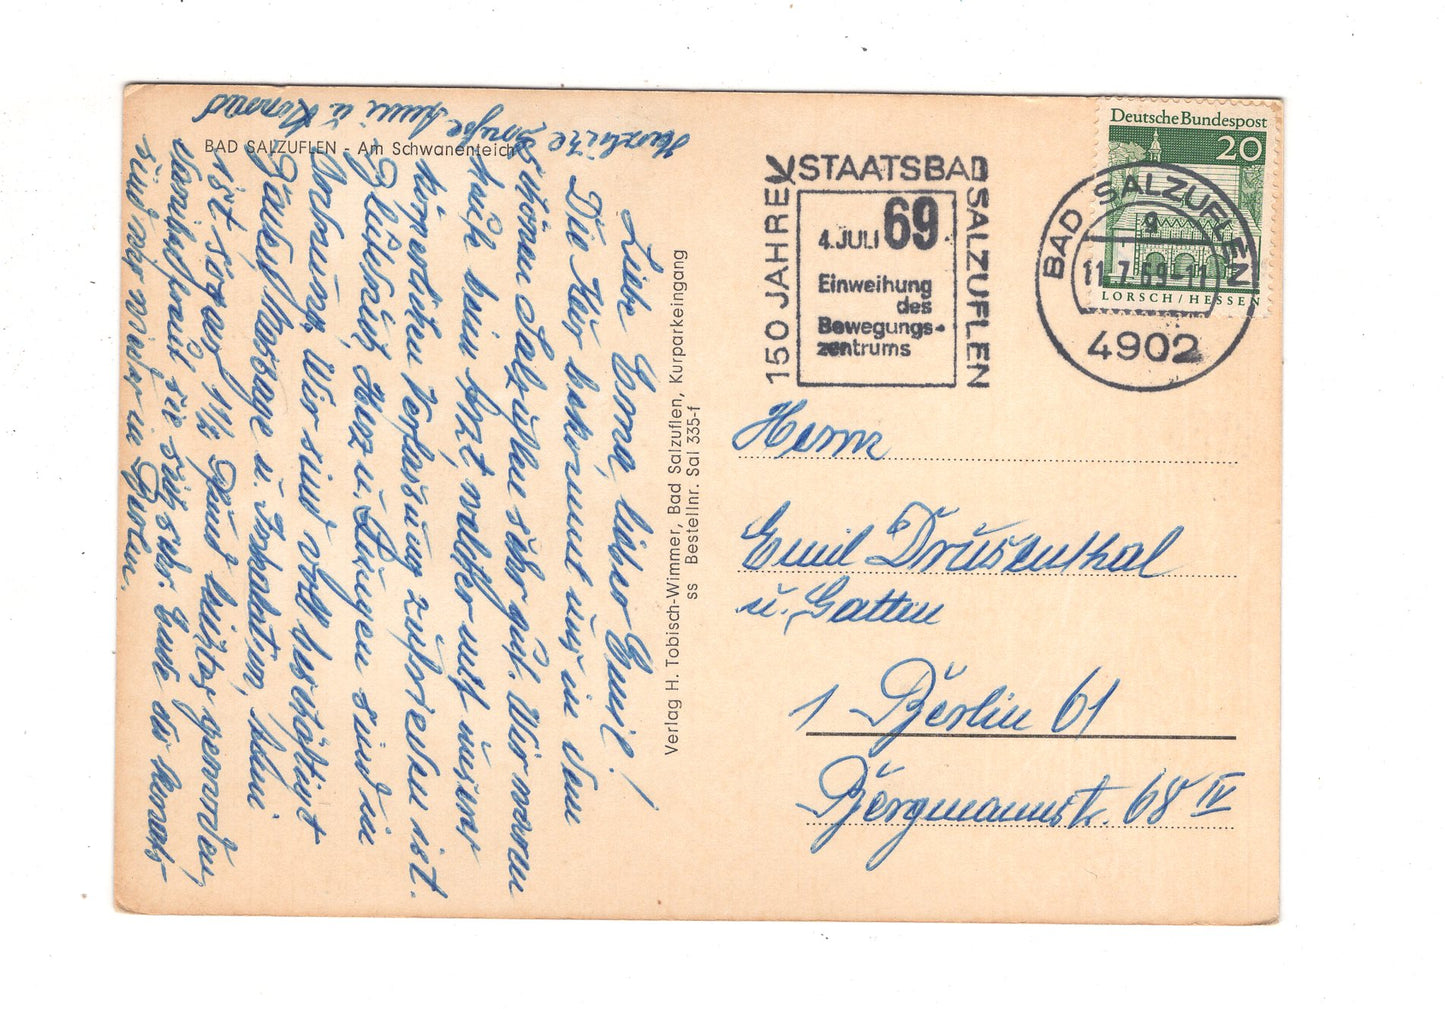 BAD SALZUFLEN - Am Schwanenteich
Liebe Erna, lieber Emil!
Die Kur bekommt uns in dem
schönen Salzuflen sehr gut. Wir waren
auch beim Arzt, welcher mit unserer
körperlichen Verfassung zufrieden ist.
Blutdruck, Herz u. Lungen sind in
Ordnung. Wir sind voll beschäftigt
u. Inhalation,
ist sogar 1½ Pfund leichter geworden,
sie sich sehr. Ende des Monats
sind wir wieder in Berlin.
Herzliche Grüße u. Konrad
Verlag H. Tobisch-Wimmer, Bad Salzuflen, Kurparkeingang
ss Bestellnr. Sal 335-f
150 JAHRE STAATSBAD SALZUFLEN
4. JULI 69
Einweihung
des
Bewegungs-
zentrums
Deutsche Bundespost
20
LORSCH/HESSEN
BAD SALZUFLEN
g
11.7.69-11
4902
Herrn
Emil Drusenthal
u. Gattin
1 Berlin 61
Bergmannstr. 68 IV